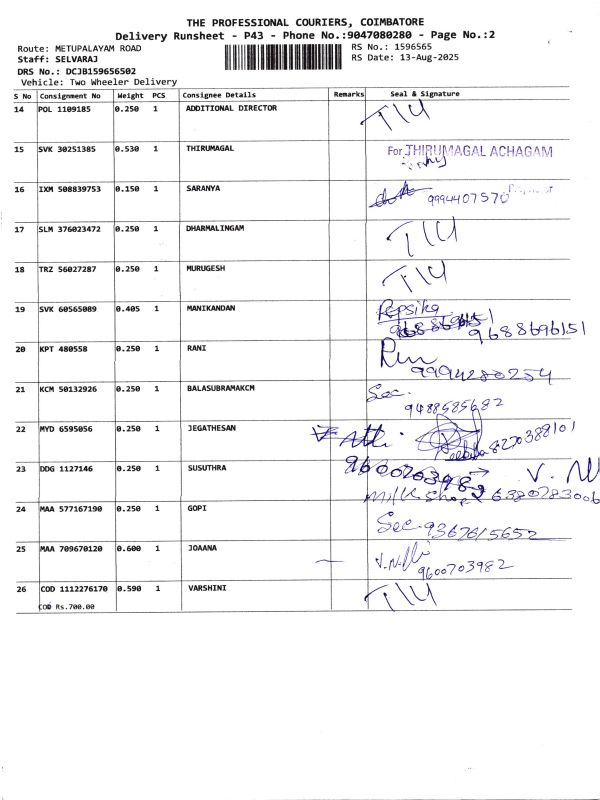 THE PROFESSIONAL COURIERS, COIMBATORE
Delivery Runsheet - P43 - Phone No.:9047080280 - Page No.:2
Route: METUPALAYAM ROAD RS No.: 1596565
Staff: SELVARAJ RS Date: 13-Aug-2025
DRS No.: DCJB159656502
Vehicle: Two Wheeler Delivery
S No Consignment No Weight PCS Consignee Details Remarks Seal & Signature
14 POL 1109185 0.250 1 ADDITIONAL DIRECTOR
15 SVK 30251385 0.530 1 THIRUMAGAL For THIRUMAGAL ACHAGAM
16 IXM 508839753 0.150 1 SARANYA 9994407570
17 SLM 376023472 0.250 1 DHARMALINGAM
18 TRZ 56027287 0.250 1 MURUGESH
19 SVK 60565089 0.405 1 MANIKANDAN 9688696151
20 KPT 480558 0.250 1 RANI 9994280254
21 KCM 50132926 0.250 1 BALASUBRAMAKCM Sec. 9488585682
22 MYD 6595056 0.250 1 JEGATHESAN 8220388101
23 DDG 1127146 0.250 1 SUSUTHRA 9600703982
Milk Shop 6380783006
24 MAA 577167190 0.250 1 GOPI Sec. 9367615652
25 MAA 709670120 0.600 1 JOAANA 9600703982
26 COD 1112276170 0.590 1 VARSHINI
COD Rs.700.00